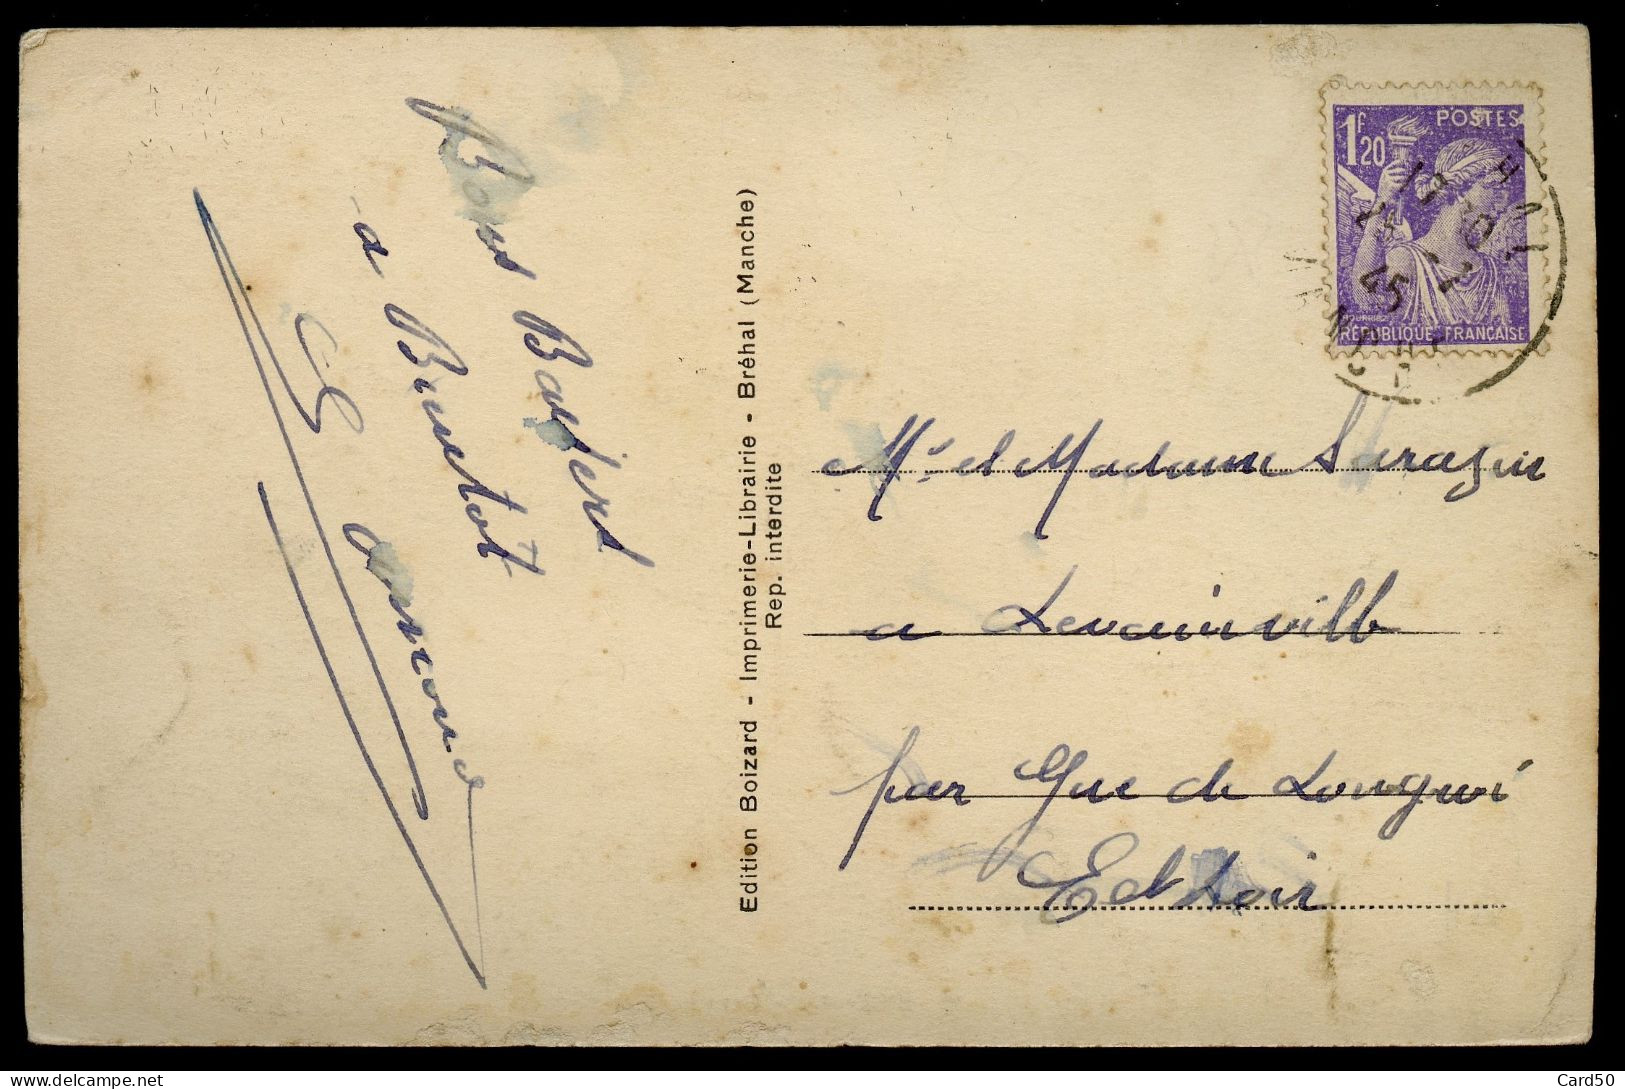 Bons Baisers
a Bientot
Edmond
Edition Boizard - Imprimerie-Librairie - Bréhal (Manche)
Rep. interdite
1F20
POSTES
RÉPUBLIQUE FRANÇAISE
45
Mr et Madame Sarazin
a Levainville
par Gue de Longroi
E et Loir
Card50